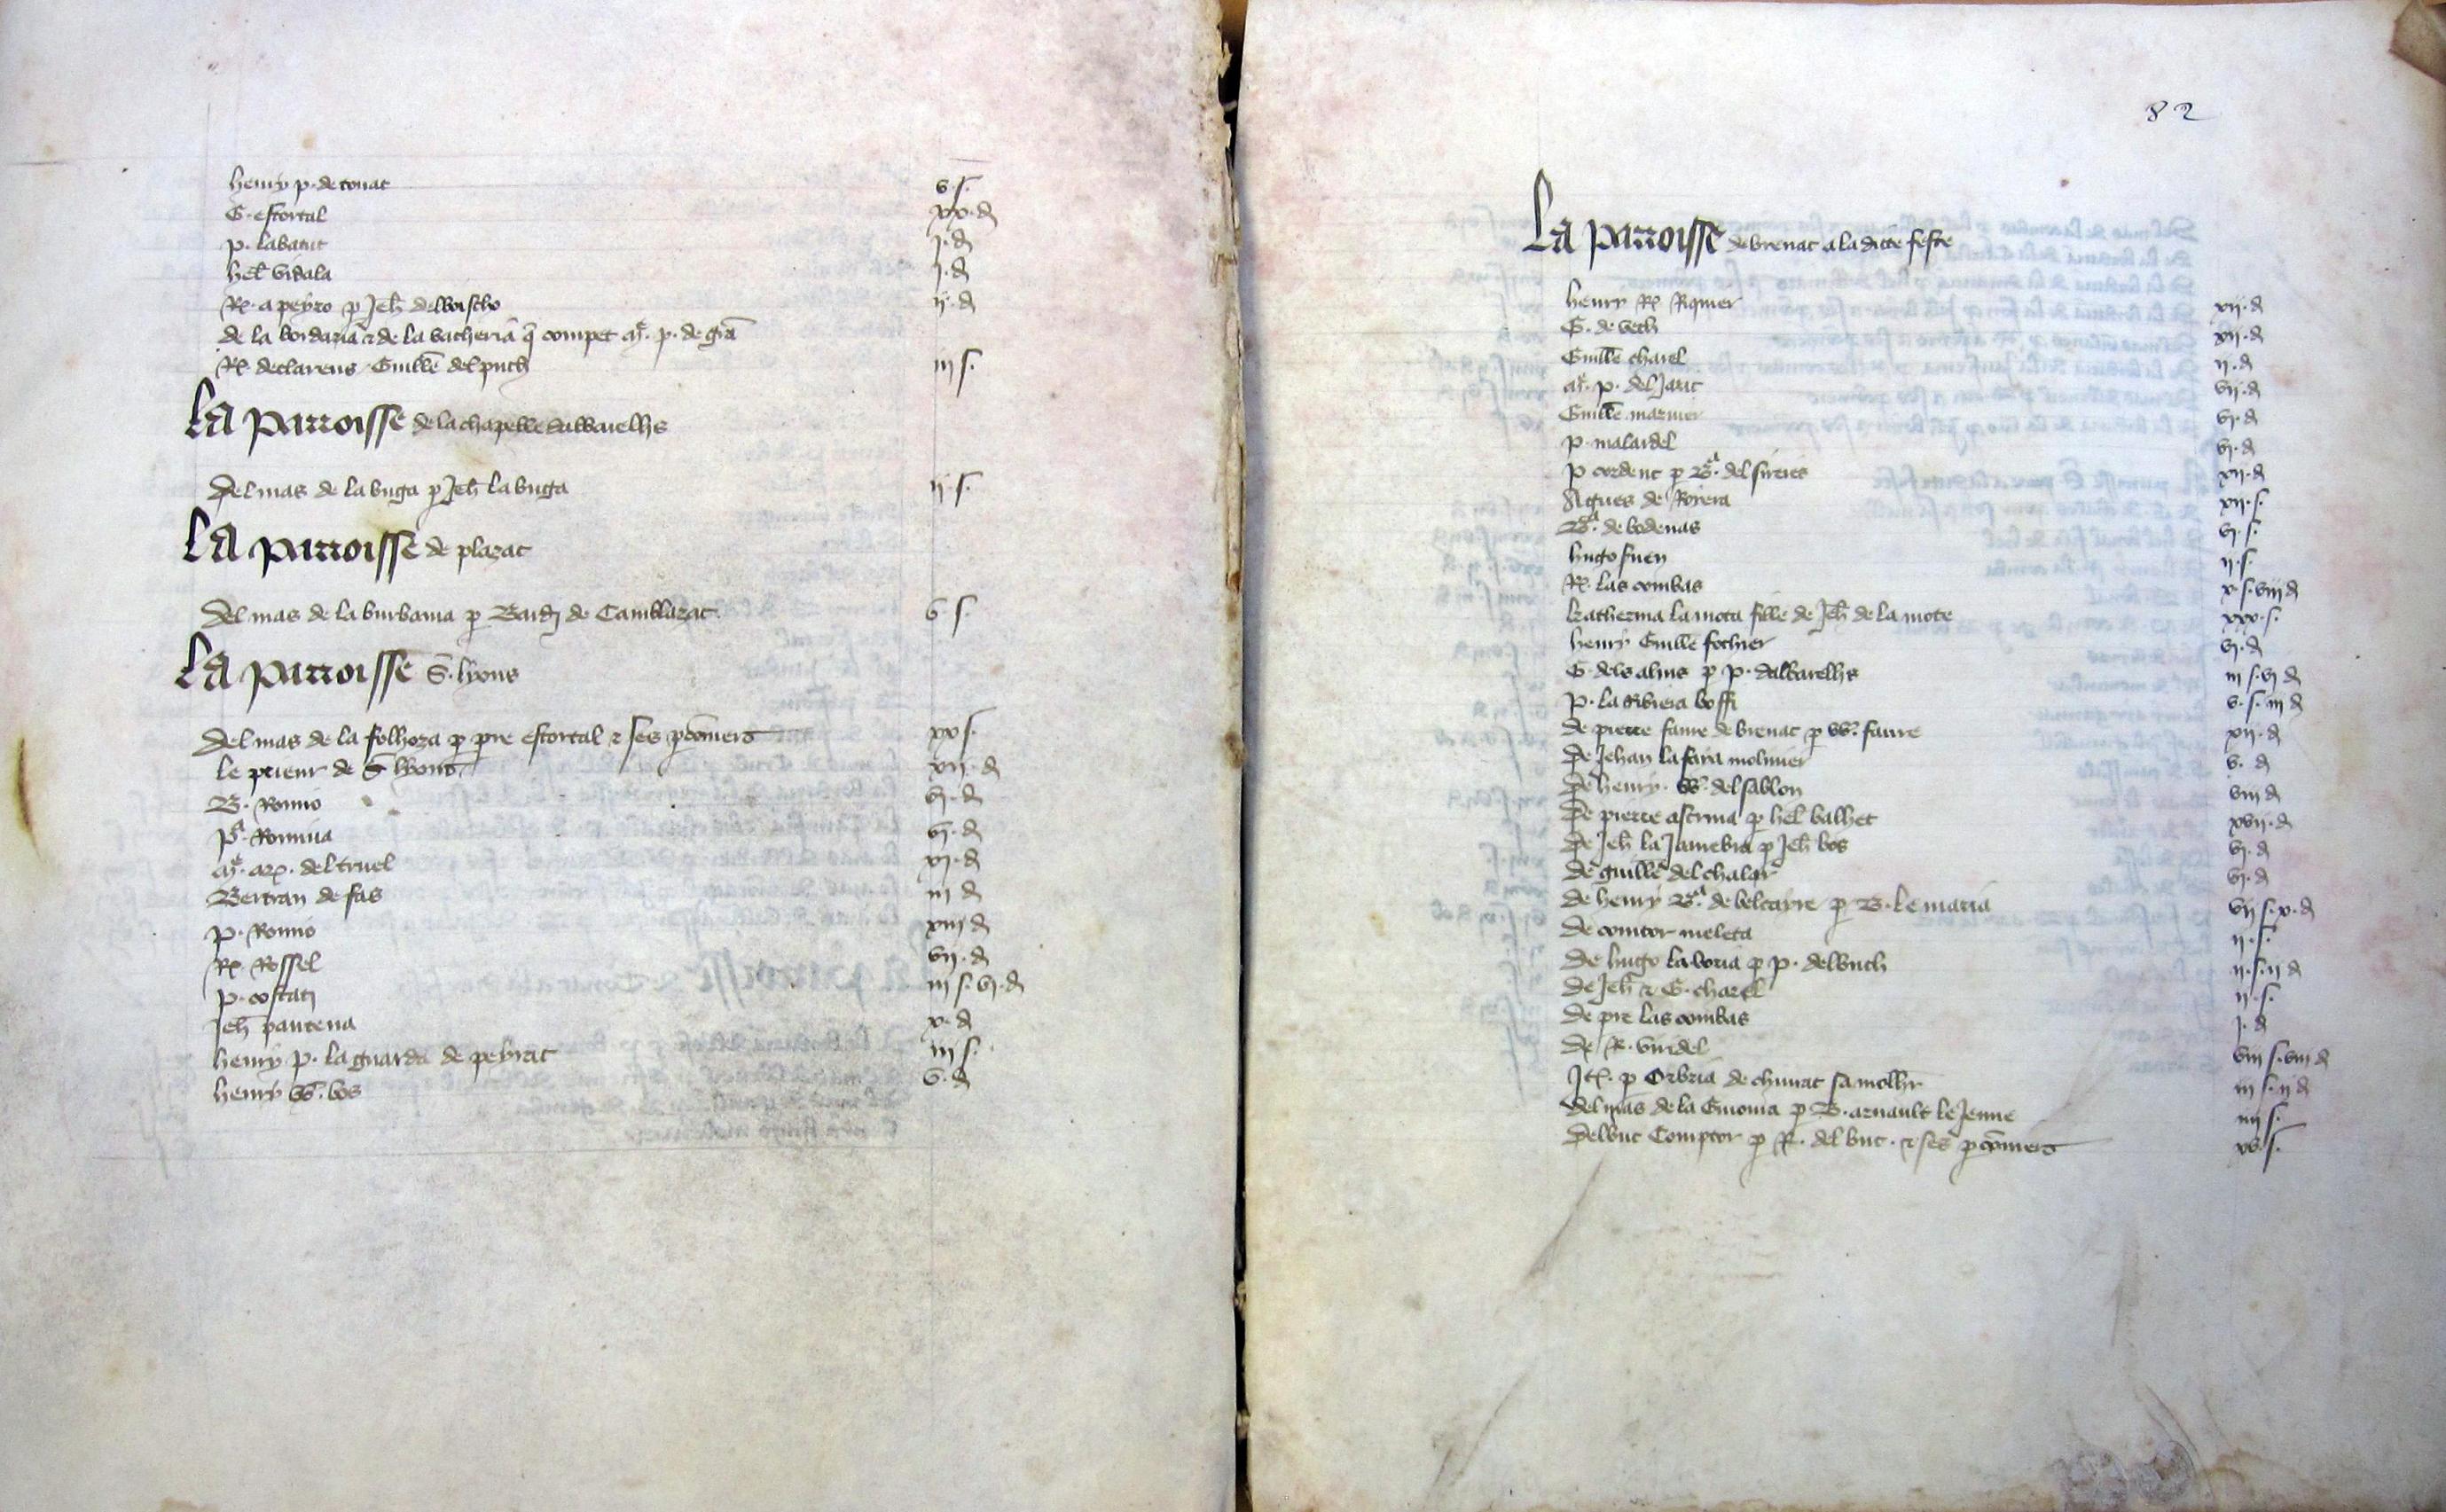 henry p. de tonac v. s.
G. estortal xx. d
p. labatut j. d
hel vidala j. d
R. a peyro p Jeh delboscho ii. d
de la bordaria & de la vacheria q compet p. de gra
R. declarens Guille del puch iii s.
La parroisse de la chapelle dalbarelhs
Del mas de la buga p Jeh la buga ii. s.
La parroisse de plazac
Del mas de la burbama p Bard de Camblazac v. s.
La parroisse S. lyons
Del mas de la folhoza p pre estortal & ses pconiers xx s.
le prieur de S. lyons xii. d
B. Romio vi. d
pa. Romiua vi. d
del truel xi. d
Bertran de fas iii d
p. Romio xiii d
R. Rossel vii. d
p. costati iii s. vi. d
Jeh pautena x. d
henry p. la guarda de peyrac iii s.
henry W. bos v. d
82
La parroisse de brenac a la dicte feste
henry R. Riquier xii. d
G. de vech xii. d
Guille charel ii. d
p. del Jaric vii. d
Guille marnier vi. d
p. malardel vi. d
p cordenc p Ba. del sirieis xii. d
Agnes de Roreia xii. s.
Ba. de bodenas vi. s.
hugo fuen ii. s.
R. las combas x. s. viii d
katherina la mota fille de Jeh de la mote xxv. s.
henry Guille fochier vi. d
G. dels alins p p. dalbarelhs iii s. vi d
p. la Ribieia boffi v. s. iii d
de pierre faure de brenac p W. faure xii. d
De Jehan la fara molinier v. d
De henry W. del sablon viii d
De pierre astrina p hel balhet xvii. d
De Jeh la Jamebia p Jeh bos vi. d
de guille del chalar vi. d
de henry Ba. de belcayre p B. le maria vii s. x. d
de comtor meleta ii. s.
de hugo la boria p p. delbuch ii. s. ii d
de Jeh & G. charel ii. s.
de pre las combas j. d
de R. viridel viii s. viii d
Jt. p Orbria de chunac sa molhr iii s. ii d
del mas de la Guionia p B. arnault le Jeune iiii s.
Delbuc Comptor p R. del buc. & ses pconiers xv. s.